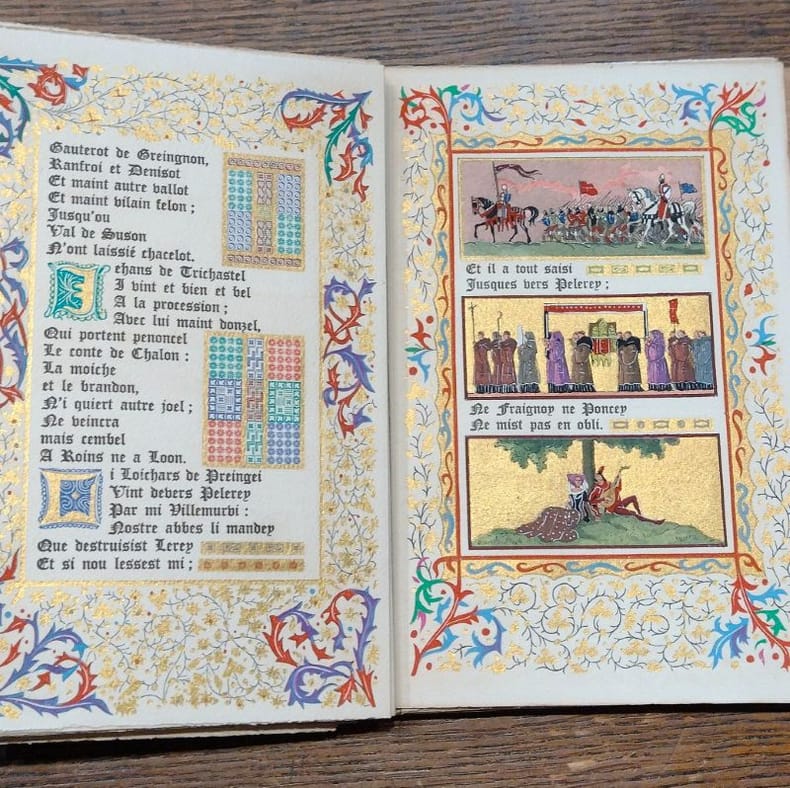 Gauterot de Greingnon,
Ranfroi et Denisot
Et maint autre vallot
Et maint vilain felon ;
Jusqu'ou
Val de Suson
N'ont laissié chacelot.
Jehans de Trichastel
I vint et bien et bel
A la procession ;
Avec lui maint donzel,
Qui portent penoncel
Le conte de Chalon :
La moiche
et le brandon,
N'i quiert autre joel ;
Ne veincra
mais cembel
A Roins ne a Loon.
Di Loichars de Preingei
Vint devers Pelerey
Par mi Villemurvi :
Nostre abbes li mandey
Que destruisist Lerey
Et si nou lessest mi ;
Et il a tout saisi
Jusques vers Pelerey ;
Ne Fraignoy ne Poncey
Ne mist pas en obli.